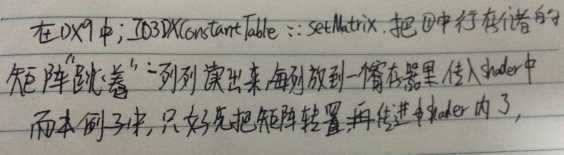 在DX9中; ID3DXConstantTable::setMatrix.把①中行存储着的
矩阵"跳着"一列列读出来,每列放到一个寄存器里传入shader中
而本例子中,只好先把矩阵转置再传进shader内了,